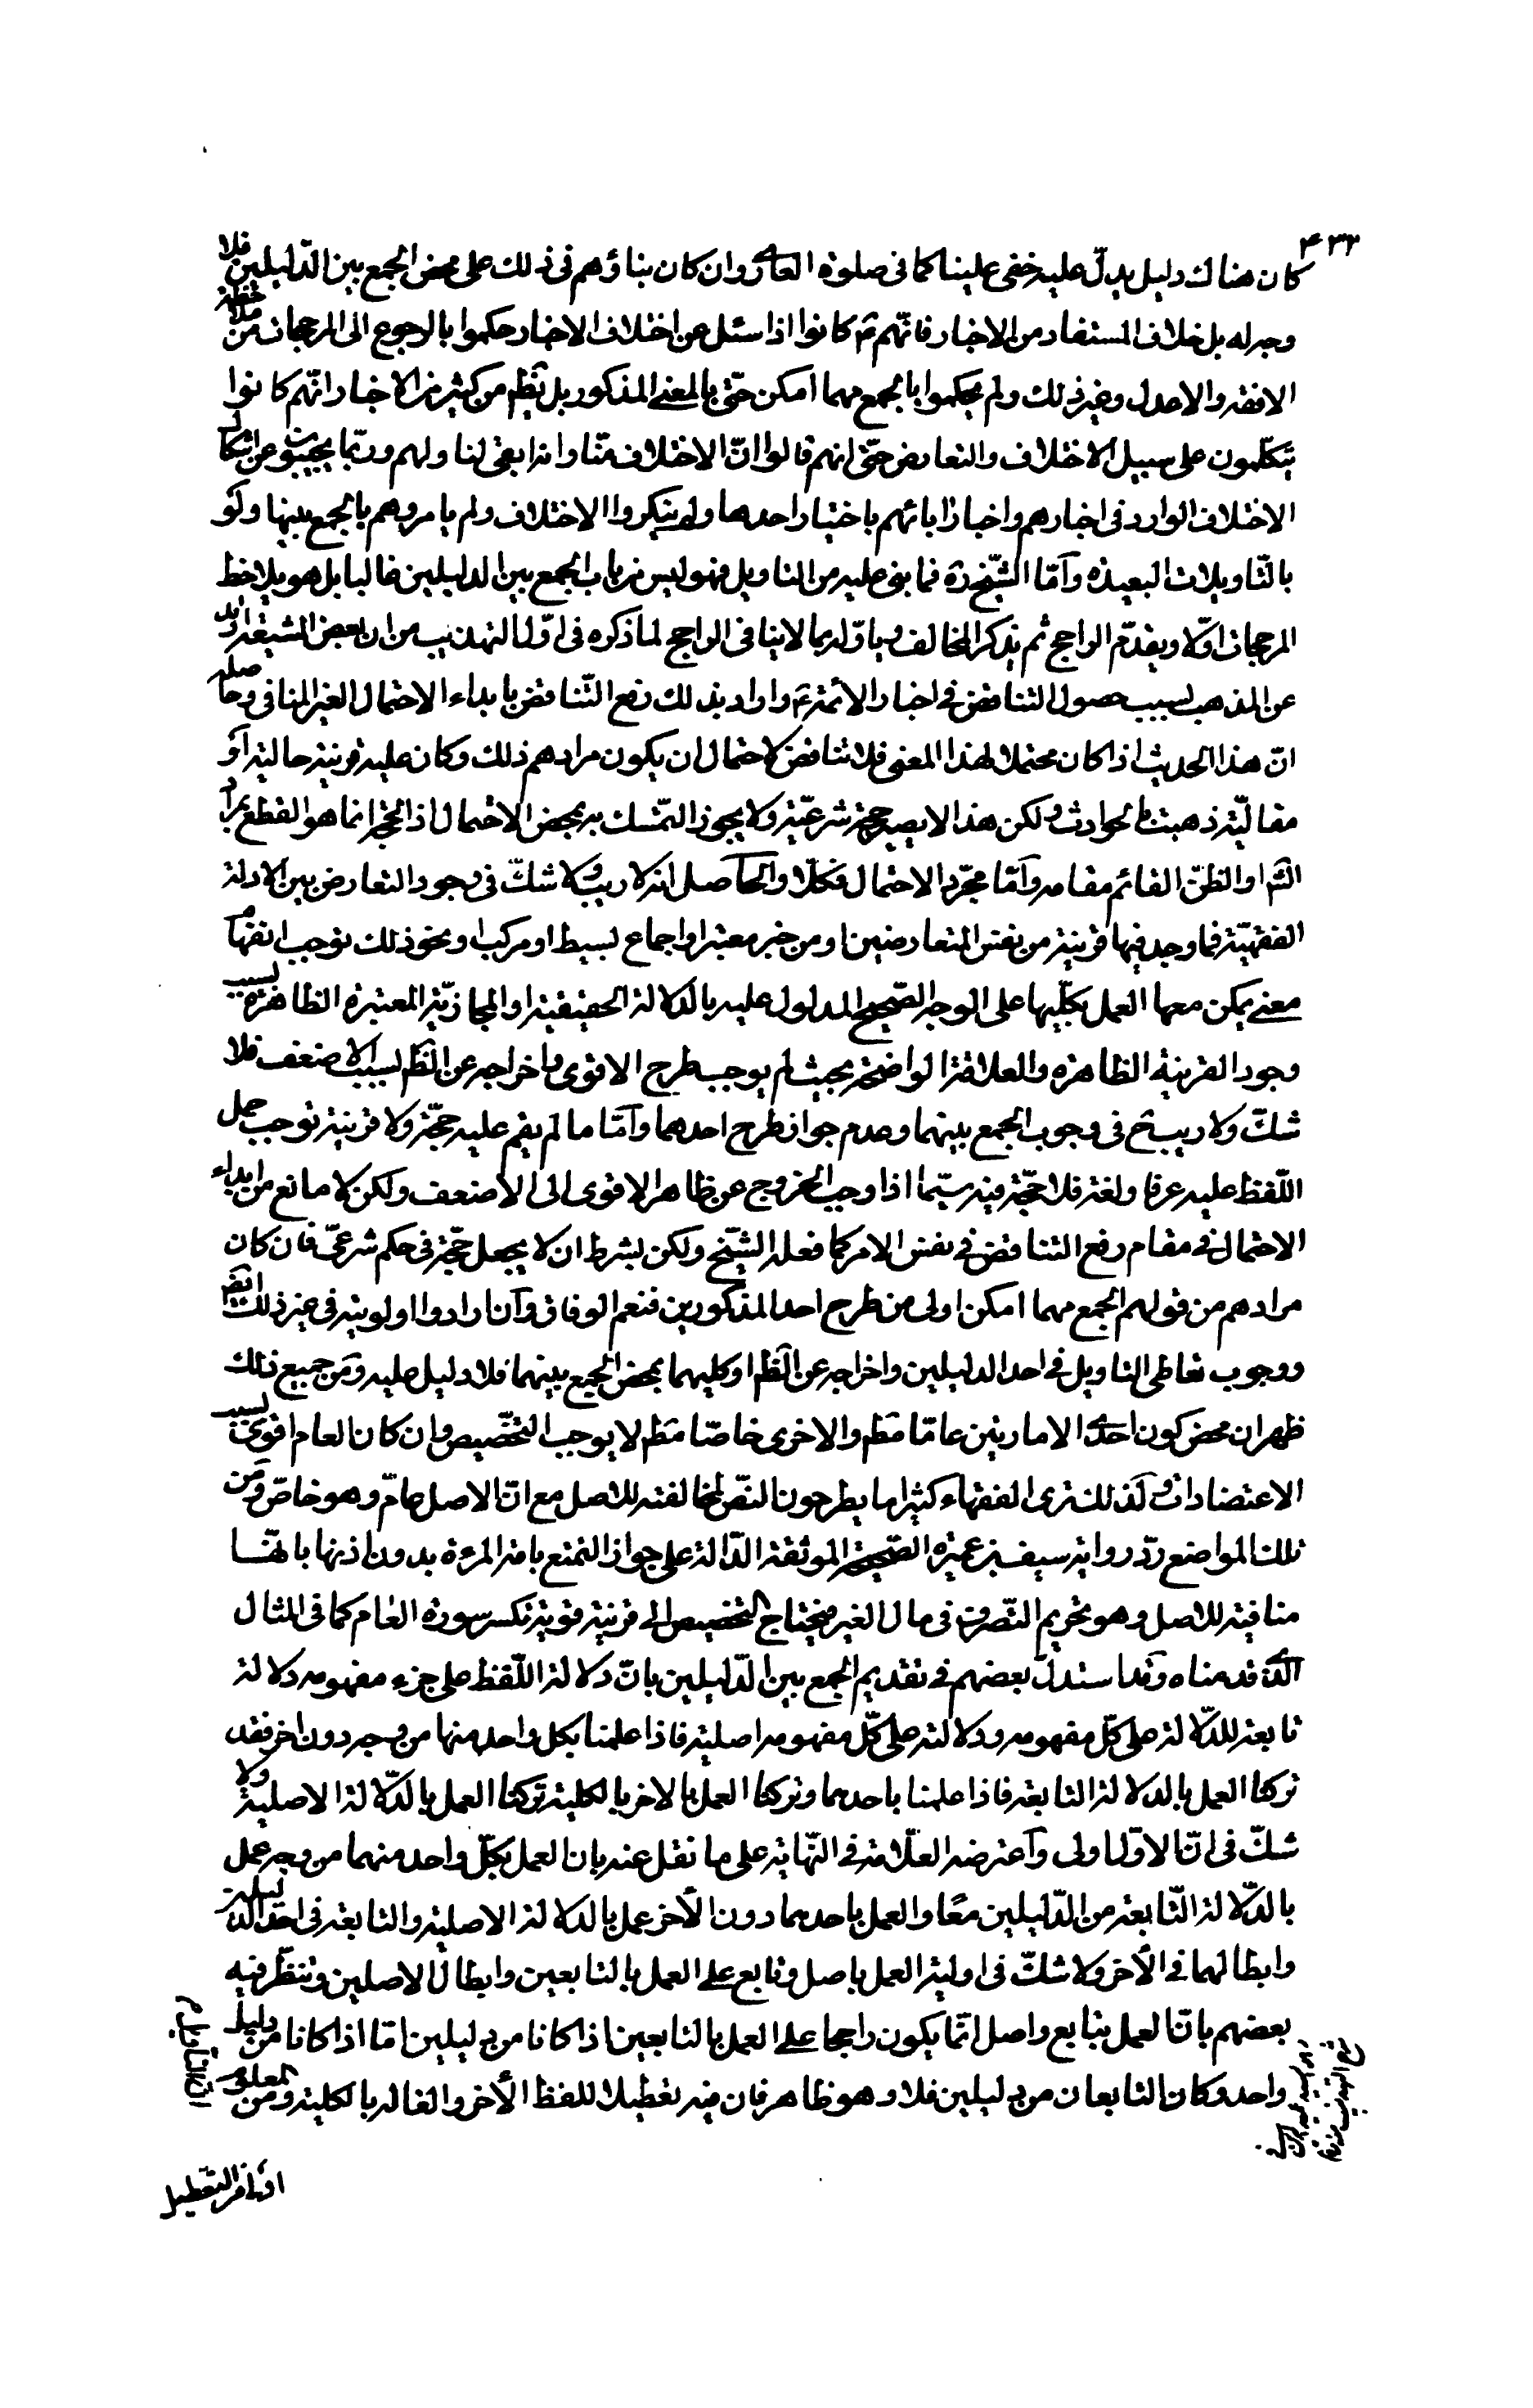 ٤٣٣
كان هناك دليل يدلّ عليه خفى علينا كما فى صلوة العارى وان كان بناؤهم فى ذلك على محض الجمع بين الدّليلين فلا
وجه له بل خلاف المستفاد من الاخبار فانّهم ع كانوا اذا سئل عن اختلاف الاخبار حكموا بالرجوع الى المرجحات من ملاحظة
الافقه والاعدل وغير ذلك ولم يحكموا بالجمع مهما امكن حتّى بالمعنى المذكور بل يظهر من كثير من الاخبار انّهم كانوا
يتكلّمون على سبيل الاختلاف والتعارض حتّى انهم قالوا انّ الاختلاف منّا وانه ابقى لنا ولهم وربّما يجيبون عن اشكال
الاختلاف الوارد فى اخبارهم واخبار ابائهم باختيار احدهما ولم ينكروا الاختلاف ولم يامروهم بالجمع بينها ولو
بالتّاويلات البعيدة وامّا الشّيخ ره فما بنى عليه من التاويل فهو ليس من باب الجمع بين الدليلين غالبا بل هو يلاحظ
المرجحات اوّلا ويقدّم الراجح ثم يذكر المخالف وياوّله بما لا ينافى الراجح لما ذكره فى اوّل التهذيب من ان بعض الشيعة ارتد
عن المذهب لسبب حصول التناقض فى اخبار الائمة ع واراد بذلك رفع التّناقض بابداء الاحتمال الغير المنافى وحاصله
انّ هذا الحديث اذا كان محتملا لهذا المعنى فلا تناقض لاحتمال ان يكون مرادهم ذلك وكان عليه قرينة حالية او
مقاليّة ذهبت بالحوادث ولكن هذا لا يصير حجة شرعيّة ولا يجوز التمّسك به بمحض الاحتمال اذ الحجة انما هو القطع بمراد
الشّارع او الظنّ القائم مقامه وامّا مجرّد الاحتمال فكلّا والحاصل انه لا ريب ولا شكّ فى وجود التعارض بين الادلة
الفقهيّة فما وجد فيها قرينة من نفس المتعارضين او من خبر معتبر او اجماع بسيط او مركب او نحو ذلك توجب انفهام
معنى يمكن معها العمل بكلّيها على الوجه الصّحيح المدلول عليه بالدلالة الحقيقية او المجازيّة المعتبرة الظاهرة بسبب
وجود القرينة الظاهرة والعلاقة الواضحة بحيث لم يوجب طرح الاقوى واخراجه عن الظّاهر لسبب الاضعف فلا
شكّ ولا ريب ح فى وجوب الجمع بينهما وعدم جواز طرح احدهما وامّا ما لم يقم عليه حجّة ولا قرينة توجب حمل
اللّفظ عليه عرفا ولغة فلا حجّة فيه سيّما اذا وجب الخروج عن ظاهر الاقوى الى الاضعف ولكن لا مانع من ابداء
الاحتمال فى مقام رفع التناقض فى نفس الامر كما فعله الشّيخ ولكن بشرط ان لا يجعل حجّة فى حكم شرعىّ فان كان
مرادهم من قولهم الجمع مهما امكن اولى من طرح احد المذكورين فنعم الوفاق وان ارادوا اولويته فى غير ذلك ايضا
ووجوب تعاطى التاويل فى احد الدليلين واخراجه عن الظّاهر او كليهما بمحض الجمع بينهما فلا دليل عليه ومن جميع ذلك
ظهر ان محض كون احدى الامارتين عامّا مط والاخرى خاصّا مط لا يوجب التخصّيص وان كان العام اقوى بسبب
الاعتضادات ولذلك ترى الفقهاء كثيرا ما يطرحون النصّ لمخالفته للاصل مع انّ الاصل عامّ وهو خاصّ ومن
تلك المواضع ردّ رواية سيف بن عميرة الصّحيحة الموثقة الدّالة على جواز التمتع بامة المرءة بدون اذنها بانّها
منافية للاصل وهو تحريم التّصرف فى مال الغير فيحتاج التخصيص الى قرينة قوية تكسر سورة العام كما فى المثال
الّذى قدمناه وقد استدلّ بعضهم فى تقديم الجمع بين الدّليلين بانّ دلالة اللّفظ على جزء مفهومه دلالة
تابعة للدّلالة على كلّ مفهومه ودلالته على كلّ مفهومه اصلية فاذا علمنا بكل واحد منها من وجه دون اخر فقد
تركنا العمل بالدلالة التابعة فاذا علمنا باحدهما وتركنا العمل بالاخر بالكلية تركنا العمل بالدّلالة الاصلية ولا
شكّ فى انّ الاوّل اولى واعترضه العلّامة فى النّهاية على ما نقل عنه بان العمل بكلّ واحد منهما من وجه عمل
بالدّلالة التّابعة من الدّليلين معًا والعمل باحدهما دون الأخر عمل بالدلالة الاصلية والتابعة فى احد الدليلين
وابطالهما فى الأخر ولا شكّ فى اولية العمل باصل وتابع على العمل بالتابعين وابطال الاصلين وتنظّر فيه
بعضهم بانّ العمل بتابع واصل انّما يكون راجحا على العمل بالتابعين اذا كانا من دليلين امّا اذا كانا من دليل
واحد وكان التابعان من دليلين فلا وهو ظاهر فان فيه تعطيلا للفظ الأخر والغاله بالكلية ومن المعلوم
انّ التاويل
اولى من التعطيل